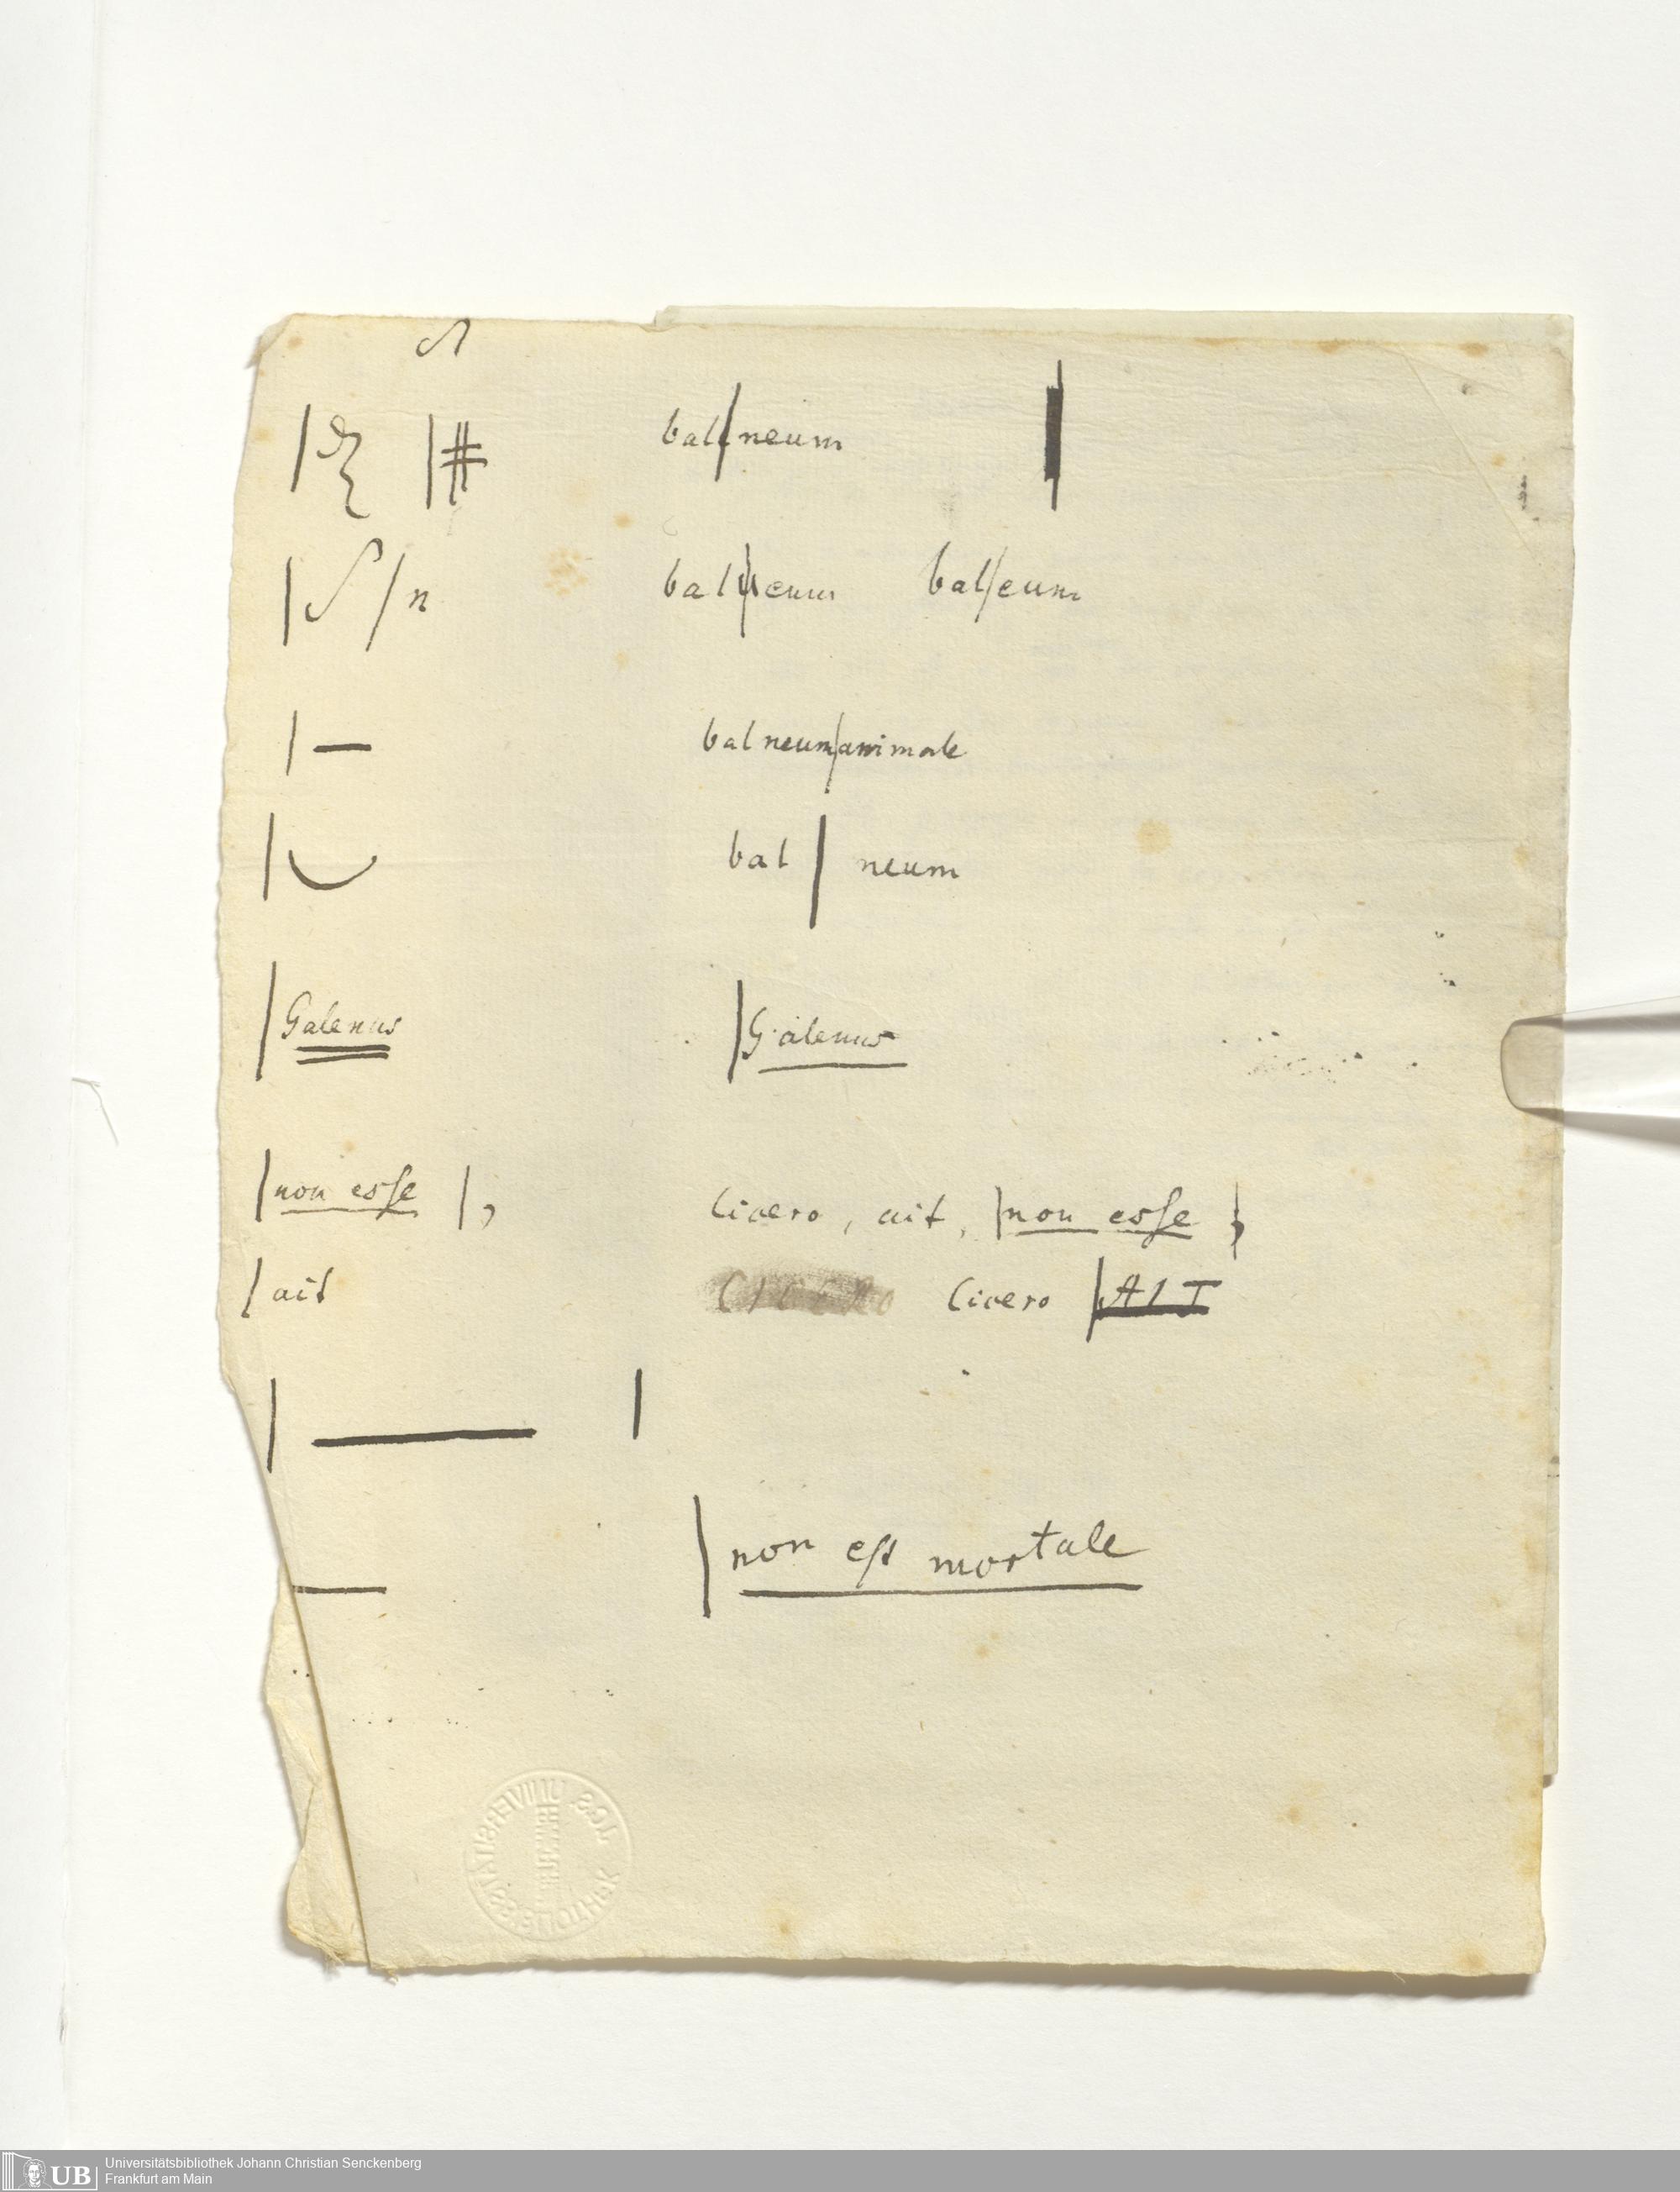 |₰ |# ball|neum |
|₰ / n bal|ueum bal/eum
| — balneum|animale
|‿ bal | neum
|Galenus |Galenus
|non esse |, Cicero, ait, |non esse ,
|ait CICERO Cicero |AIT
| — |
|non est mortale
—
J.C.S. UNIVERSITÄTSBIBLIOTHEK
UB Universitätsbibliothek Johann Christian Senckenberg
Frankfurt am Main